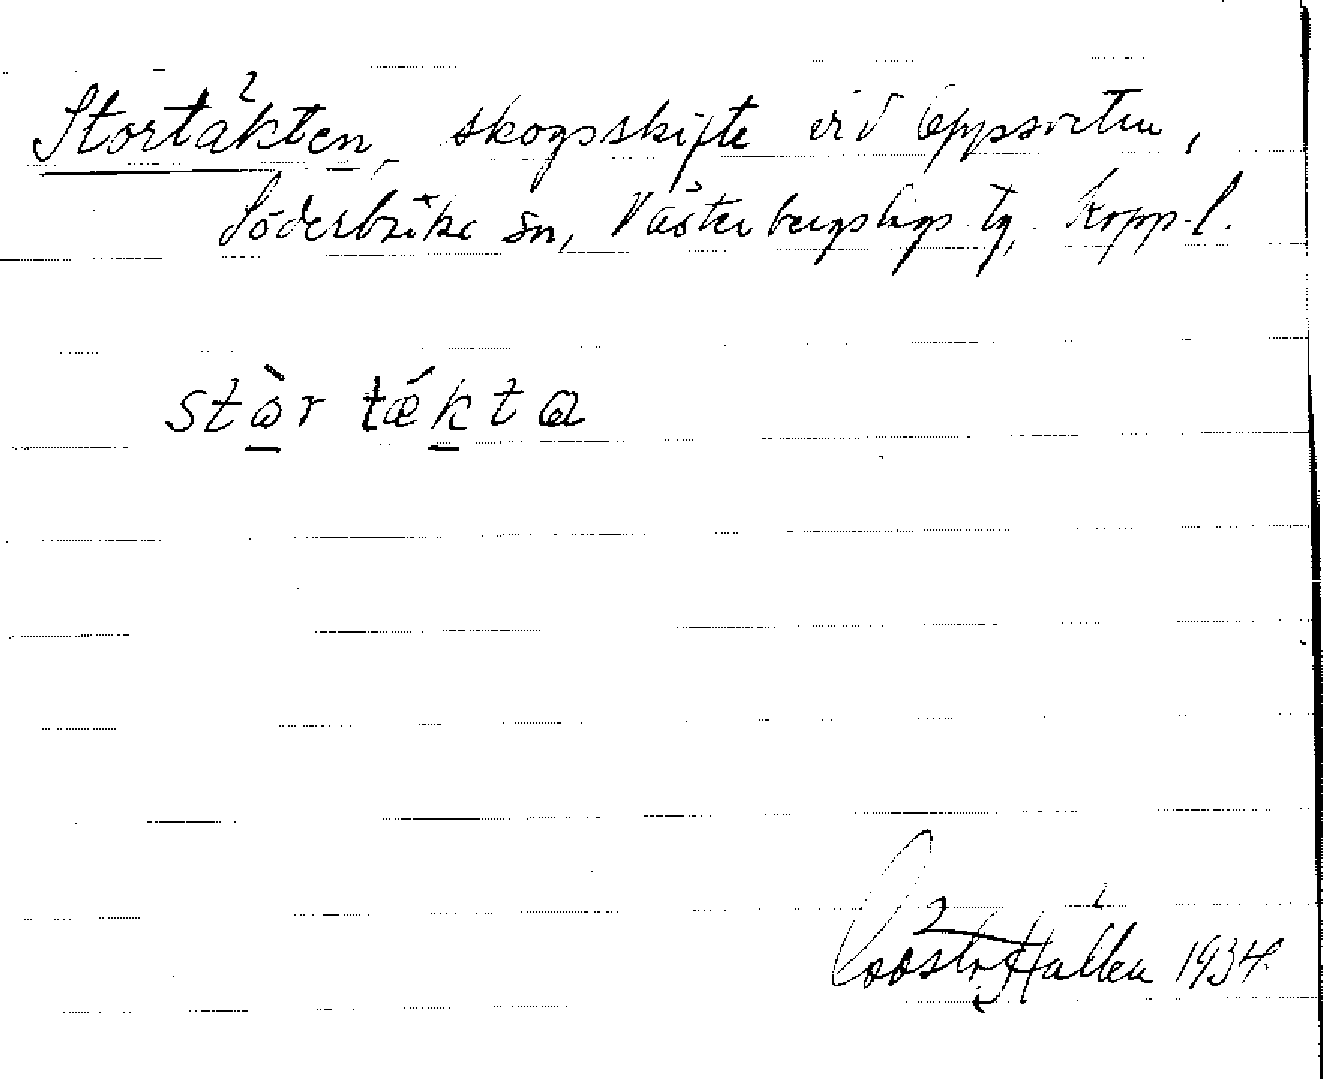 Stortäkten, skogsskifte vid Uppsveten,
Söderbärke sn, Västerbergslags tg, Kopp. l.
stòr tǽkta
Hallén 1934.